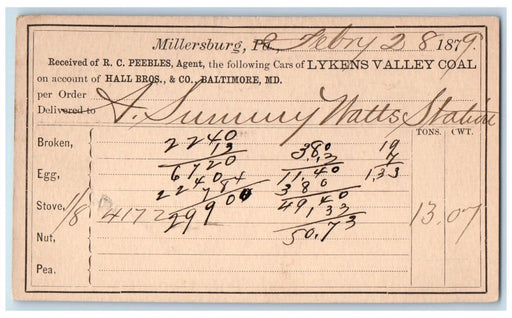 Millersburg, Pa., Febry 28 1879.
Received of R. C. PEEBLES, Agent, the following Cars of LYKENS VALLEY COAL
on account of HALL BROS., & CO., BALTIMORE, MD.
per Order
Delivered to A. Summy Watts Station
TONS. CWT.
Broken,
2240 380 19
13 3.3 7
Egg, 6720 11,40 1,33
2240 380
Stove, 1/8 4172 29900 49,40 13.07
Nut, 50,73
Pea.